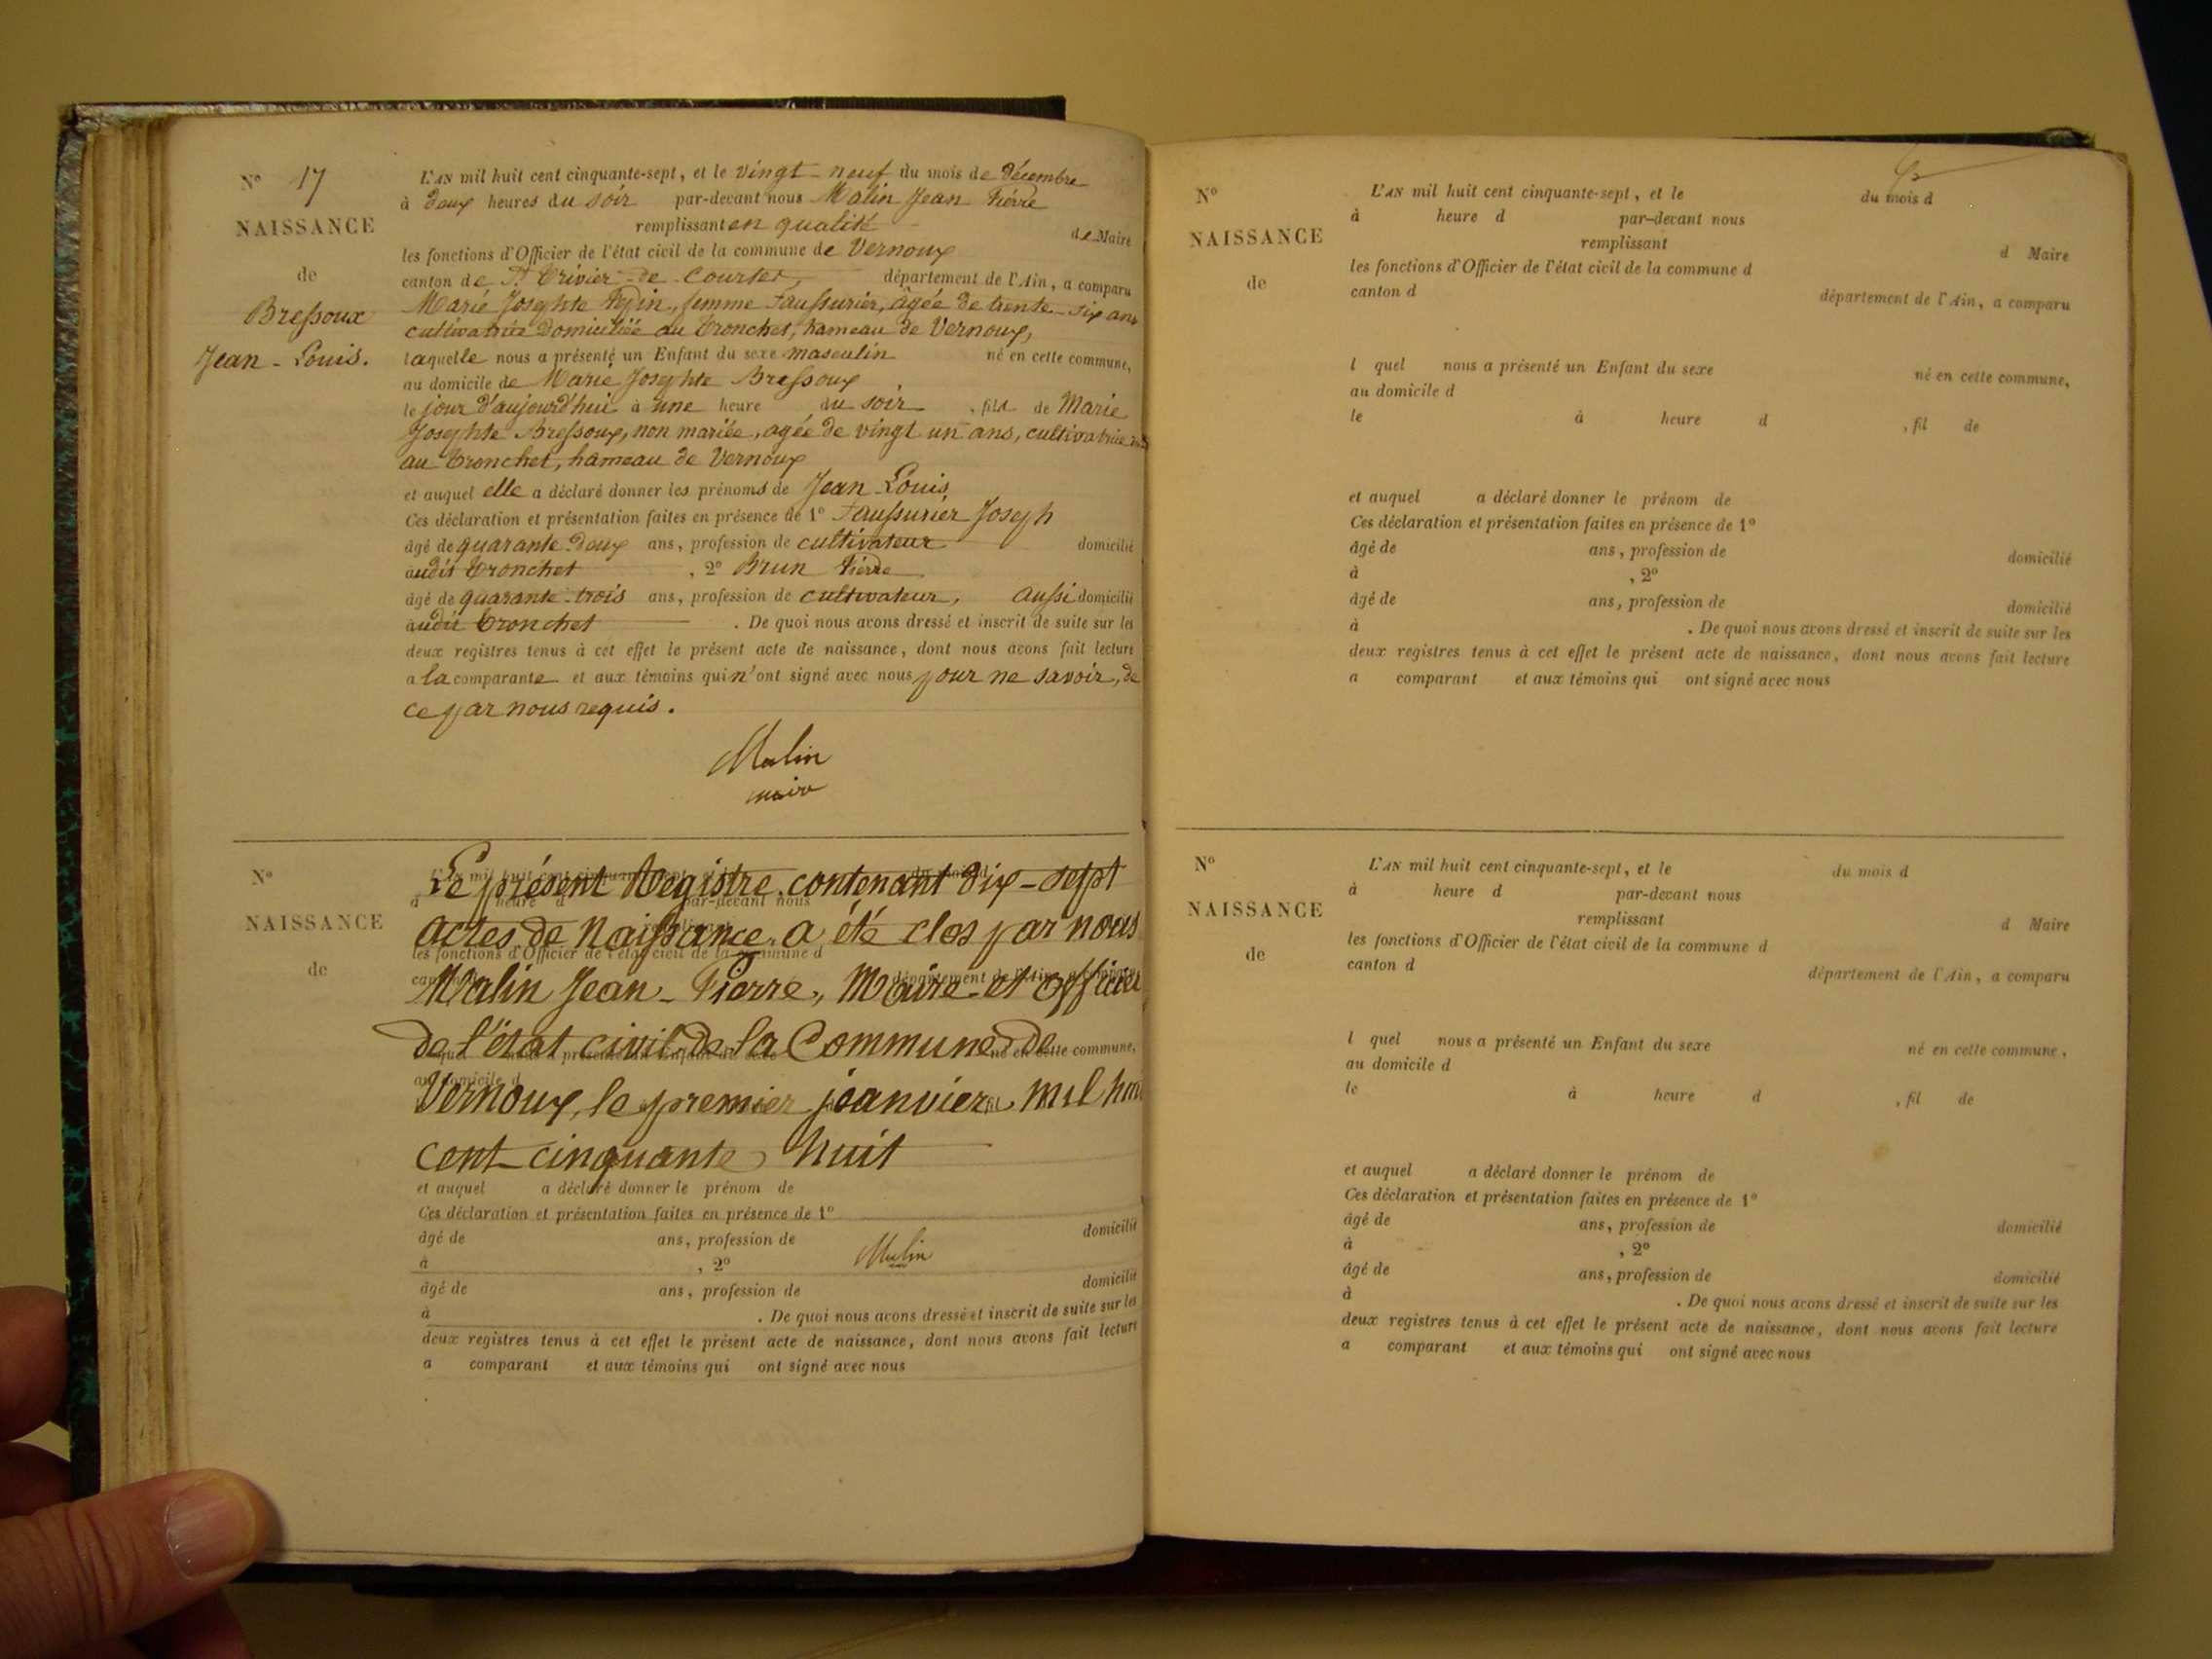 N° 17
NAISSANCE
de
Bressoux
Jean - Louis.
L'AN mil huit cent cinquante-sept, et le vingt-neuf du mois de décembre
à deux heures du soir par-devant nous Malin Jean Pierre
remplissant en qualité de Maire
les fonctions d'Officier de l'état civil de la commune de Vernoux
canton de St Trivier-de-Courtes, département de l'Ain, a comparu
Marie Josephte Pepin, femme Faussurier, âgée de trente-six ans
cultivatrice domiciliée au Tronchet, hameau de Vernoux,
laquelle nous a présenté un Enfant du sexe masculin né en cette commune,
au domicile de Marie Josephte Bressoux,
le jour d'aujourd'hui à une heure du soir, fils de Marie
Josephte Bressoux, non mariée, agée de vingt un ans, cultivatrice
au Tronchet, hameau de Vernoux
et auquel elle a déclaré donner les prénoms de Jean Louis
Ces déclaration et présentation faites en présence de 1° Faussurier Joseph
âgé de quarante-deux ans, profession de cultivateur domicilié
audit Tronchet, 2° Brun Pierre
âgé de quarante-trois ans, profession de cultivateur, aussi domicilié
audit Tronchet. De quoi nous avons dressé et inscrit de suite sur les
deux registres tenus à cet effet le présent acte de naissance, dont nous avons fait lecture
a la comparante et aux témoins qui n'ont signé avec nous pour ne savoir, de
ce par nous requis.
Malin
maire
N°
NAISSANCE
de
Le présent Registre contenant dix-sept
actes de Naissance a été clos par nous
Malin Jean-Pierre, Maire et officier
de l'état civil de la Commune de
Vernoux, le premier janvier mil huit
cent cinquante huit
et auquel a déclaré donner le prénom de
Ces déclaration et présentation faites en présence de 1°
âgé de ans, profession de domicilié
à , 2°
Malin
âgé de ans, profession de domicilié
à . De quoi nous avons dressé et inscrit de suite sur les
deux registres tenus à cet effet le présent acte de naissance, dont nous avons fait lecture
a comparant et aux témoins qui ont signé avec nous
N°
NAISSANCE
de
L'AN mil huit cent cinquante-sept, et le du mois d
à heure d par-devant nous
remplissant d Maire
les fonctions d'Officier de l'état civil de la commune d
canton d département de l'Ain, a comparu
l quel nous a présenté un Enfant du sexe né en cette commune,
au domicile d
le à heure d , fil de
et auquel a déclaré donner le prénom de
Ces déclaration et présentation faites en présence de 1°
âgé de ans, profession de domicilié
à , 2°
âgé de ans, profession de domicilié
à . De quoi nous avons dressé et inscrit de suite sur les
deux registres tenus à cet effet le présent acte de naissance, dont nous avons fait lecture
a comparant et aux témoins qui ont signé avec nous
N°
NAISSANCE
de
L'AN mil huit cent cinquante-sept, et le du mois d
à heure d par-devant nous
remplissant d Maire
les fonctions d'Officier de l'état civil de la commune d
canton d département de l'Ain, a comparu
l quel nous a présenté un Enfant du sexe né en cette commune,
au domicile d
le à heure d , fil de
et auquel a déclaré donner le prénom de
Ces déclaration et présentation faites en présence de 1°
âgé de ans, profession de domicilié
à , 2°
âgé de ans, profession de domicilié
à . De quoi nous avons dressé et inscrit de suite sur les
deux registres tenus à cet effet le présent acte de naissance, dont nous avons fait lecture
a comparant et aux témoins qui ont signé avec nous